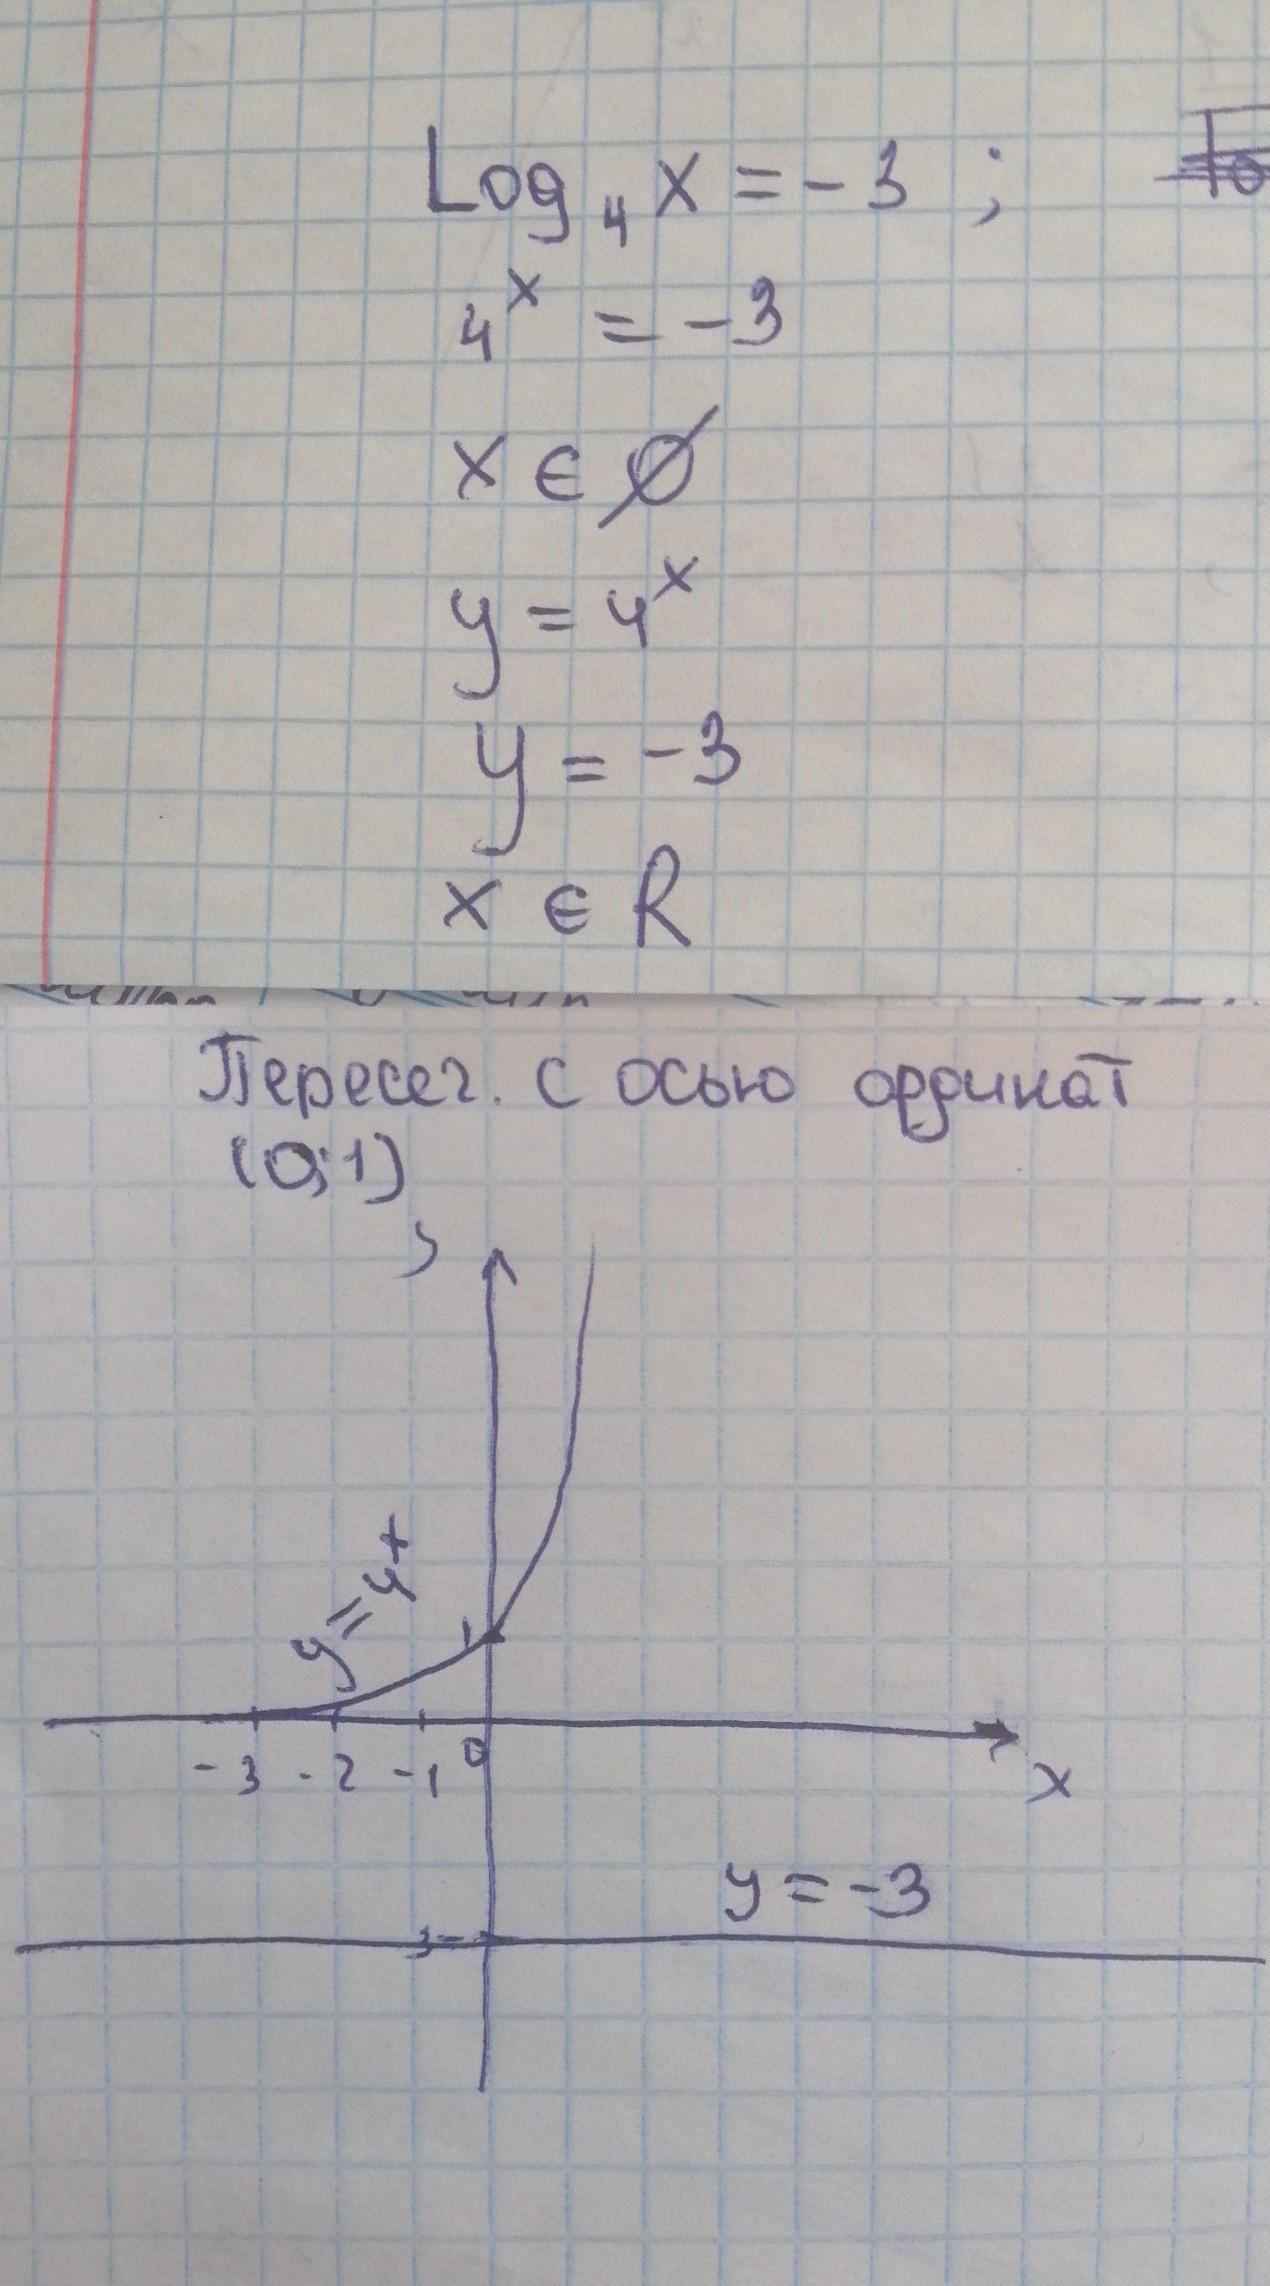 Log₄ x = -3 ;
4ˣ = -3
x ∈ ∅
y = 4ˣ
y = -3
x ∈ R
Пересеч. с осью ординат
(0;1)
y = 4ˣ
1
-3 -2 -1 0
x
y = -3
3-